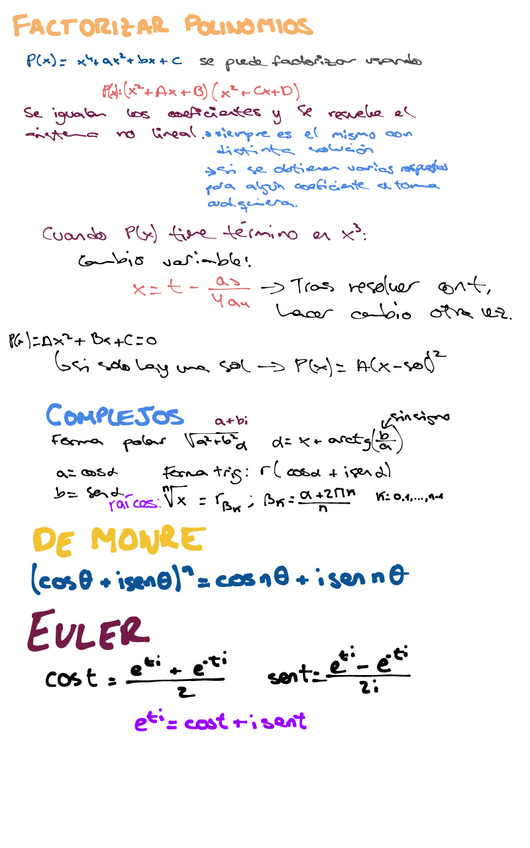 FACTORIZAR POLINOMIOS
P(x) = x⁴+ax²+bx+c se puede factorizar usando
P(x)=(x²+Ax+B)(x²+Cx+D)
Se igualan los coeficientes y se resuelve el
sistema no lineal. siempre es el mismo con
distinta solución
→ si se obtienen varias respuestas
para algún coeficiente se toma
cualquiera.
Cuando P(x) tiene término en x³:
Cambio variable:
x = t - a₃/4a₄ → Tras resolver con t,
hacer cambio otra vez.
P(x)=Ax²+Bx+C=0
↳ si solo hay una sol → P(x) = A(x-sol)²
COMPLEJOS a+bi
sin signo
Forma polar √(a²+b²)α α= x + arctg(b/a)
a=cosα Forma trig: r(cosα + isenα)
b= senα
raíces: ⁿ√x = r_βₖ ; βₖ = (α+2πk)/n K=0,1,...,n-1
DE MOIVRE
(cosθ + isenθ)ⁿ = cos nθ + i sen nθ
EULER
cos t = (e^ti + e^-ti)/2 sent = (e^ti - e^-ti)/2i
e^ti = cost + i sent